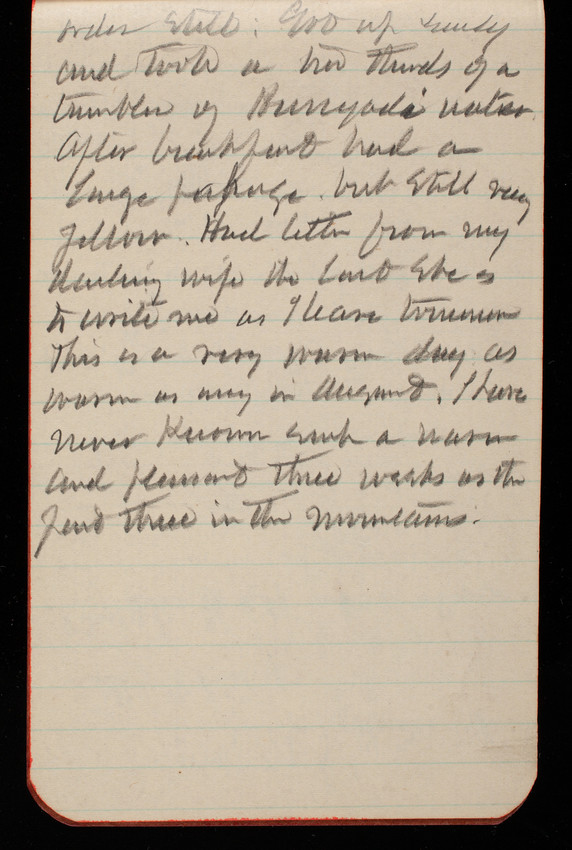 order still. Got up early
and took a two thirds of a
tumbler of Hunyadi water.
After breakfast had a
large passage. but still very
yellow. Had letter from my
darling wife the last she is
to write me as I leave tomorrow
This is a very warm day as
warm as any in August. I have
never Known such a warm
and pleasant three weeks as the
past three in the mountains.